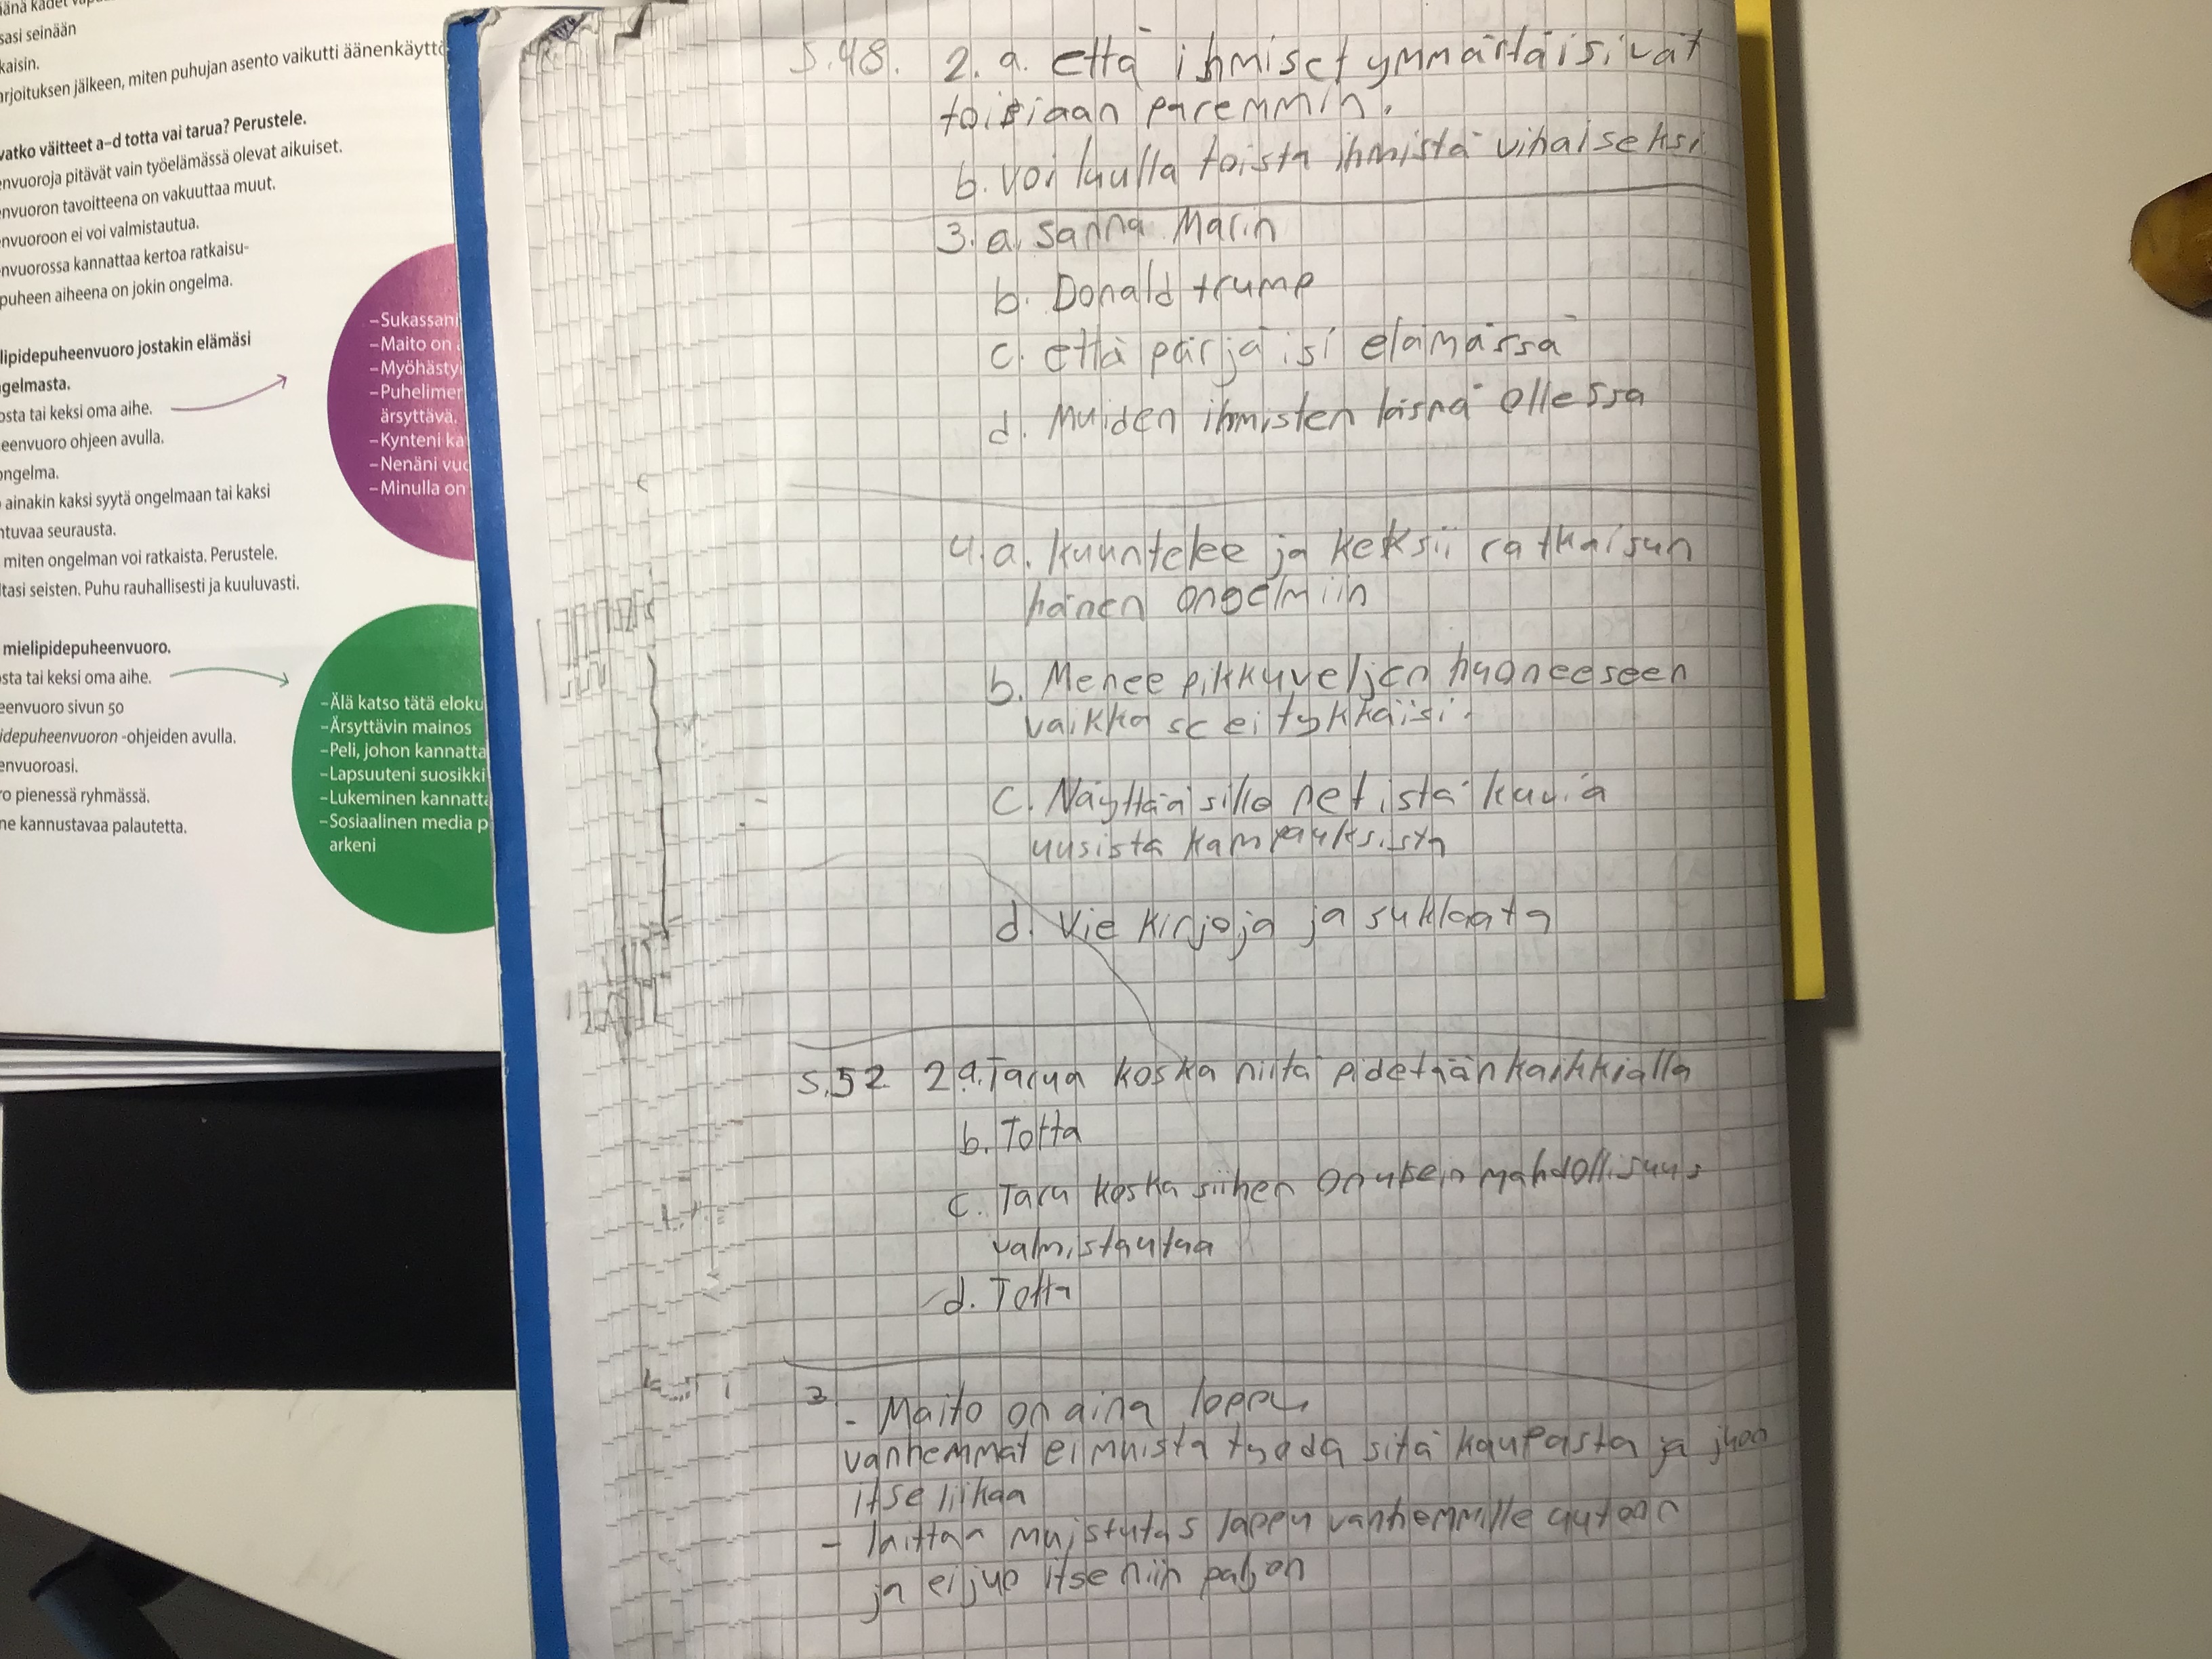 sasi seinään
kaisin.
arjoituksen jälkeen, miten puhujan asento vaikutti äänenkäyttö
vatko väitteet a–d totta vai tarua? Perustele.
envuoroja pitävät vain työelämässä olevat aikuiset.
envuoron tavoitteena on vakuuttaa muut.
envuoroon ei voi valmistautua.
envuorossa kannattaa kertoa ratkaisu-
puheen aiheena on jokin ongelma.
lipidepuheenvuoro jostakin elämäsi
gelmasta.
osta tai keksi oma aihe.
eenvuoro ohjeen avulla.
ongelma.
ainakin kaksi syytä ongelmaan tai kaksi
ntuvaa seurausta.
miten ongelman voi ratkaista. Perustele.
ltasi seisten. Puhu rauhallisesti ja kuuluvasti.
mielipidepuheenvuoro.
sta tai keksi oma aihe.
eenvuoro sivun 50
idepuheenvuoron -ohjeiden avulla.
envuoroasi.
ro pienessä ryhmässä.
ne kannustavaa palautetta.
–Sukassani
–Maito on
–Myöhästy
–Puhelimer
ärsyttävä.
–Kynteni ka
–Nenäni vuo
–Minulla on
–Älä katso tätä eloku
–Ärsyttävin mainos
–Peli, johon kannatta
–Lapsuuteni suosikki
–Lukeminen kannatta
–Sosiaalinen media p
arkeni
S.48. 2. a. että ihmiset ymmärtäisivät
toisiaan paremmin.
b. voi luulla toista ihmistä vihaiseksi
3. a. Sanna Marin
b. Donald trump
c. että pärjäisi elämässä
d. Muiden ihmisten läsnä ollessa
4. a. kuuntelee ja keksii ratkaisun
hänen ongelmiin
b. Menee pikkuveljen huoneeseen
vaikka se ei tykkäisi.
c. Näyttää sille netistä kuvia
uusista kampauksista
d. Vie kirjoja ja suklaata
S.52 2 a. Tarua koska niitä pidetään kaikkialla
b. Totta
c. Taru koska siihen on usein mahdollisuus
valmistautua
d. Totta
3
- Maito on aina loppu
vanhemmat ei muista tuoda sitä kaupasta ja juon
itse liikaa
- laittaa muistutus lappu vanhemmille autoon
ja ei juo itse niin paljon